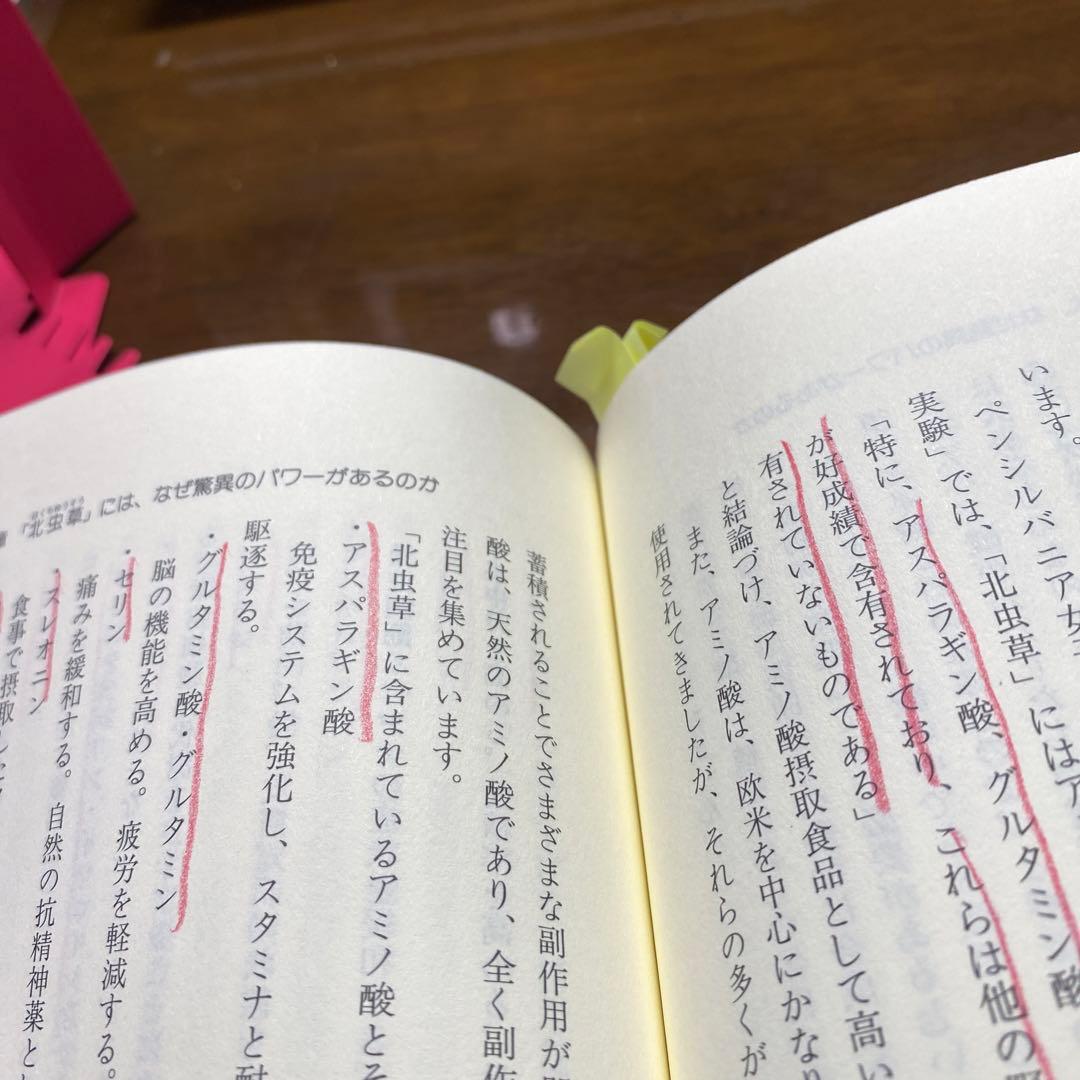 います。
ペンシルバニア女
実験」では、「北虫草」にはア
「特に、アスパラギン酸、グルタミン酸
が好成績で含有されており、これらは他の野
有されていないものである」
と結論づけ、アミノ酸摂取食品として高い
また、アミノ酸は、欧米を中心にかなり
使用されてきましたが、それらの多くが
「北虫草」には、なぜ驚異のパワーがあるのか
ほくちゅうそう
蓄積されることでさまざまな副作用が
酸は、天然のアミノ酸であり、全く副作
注目を集めています。
「北虫草」に含まれているアミノ酸とそ
・アスパラギン酸
免疫システムを強化し、スタミナと耐
駆逐する。
・グルタミン酸・グルタミン
脳の機能を高める。疲労を軽減する。
・セリン
痛みを緩和する。自然の抗精神薬と
・スレオニン
食事で摂取した